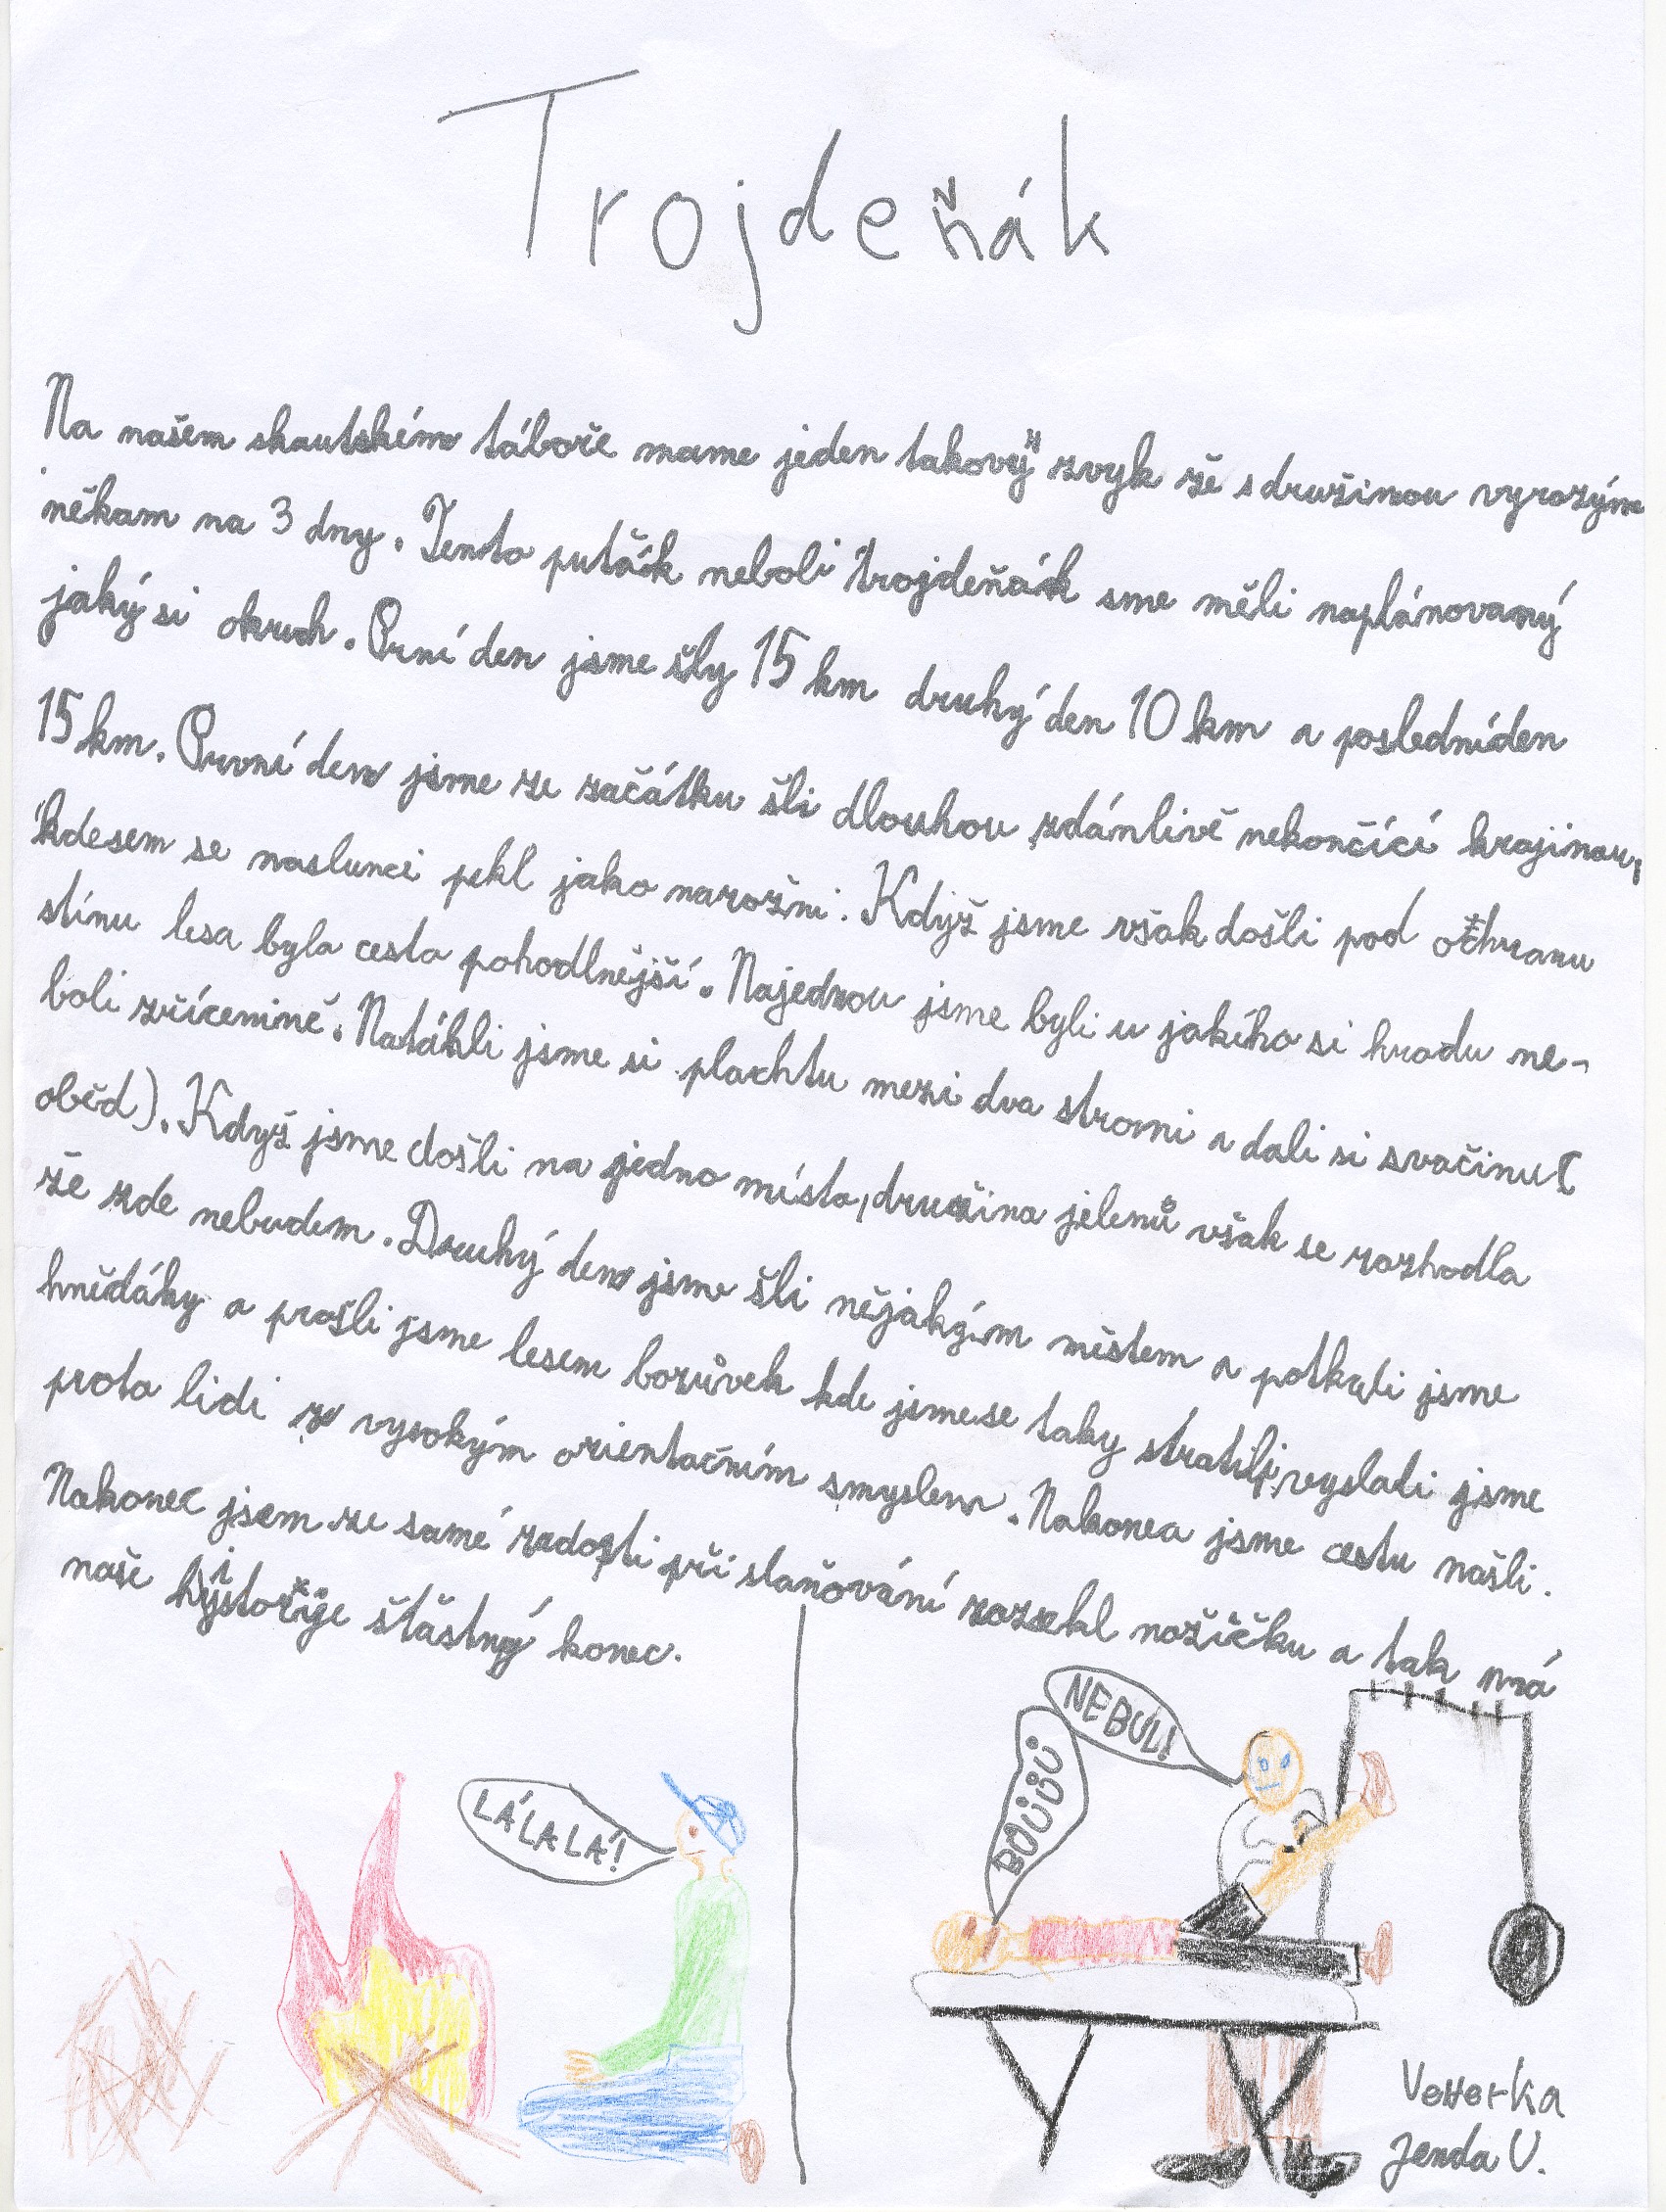 Trojdeňák
Na našem skautském táboře mame jeden takový zvyk že s družinou vyrozýme
někam na 3 dny. Tento puťák neboli trojdeňák sme měli naplánovaný
jaký si okruh. Prní den jsme šly 15 km druhý den 10 km a posledníden
15 km. První den jsme ze začátku šli dlouhou zdánlivě nekončící krajinou,
kdesem se naslunci pekl jako narožni. Když jsme však došli pod ochranu
stínu lesa byla cesta pohodlnější. Najednou jsme byli u jakího si hradu ne-
boli zřícenině. Natáhli jsme si plachtu mezi dva stromi a dali si svačinu(
oběd). Když jsme došli na jedno místo, družina jelenů však se rozhodla
že zde nebudem. Druhý den jsme šli nějakým městem a potkali jsme
hnědáky a prošli jsme lesem borůvek kde jsmese taky stratili, vyslali jsme
proto lidi ze vysokým orientačním smyslem. Nakonec jsme cestu našli.
Nakonec jsem ze samé radosti při slaňování rozsekl nožičku a tak má
naše hystorije štastný konec.
LÁLALÁ!
NEBUL!
BÚÚÚÚ
Jenda V.